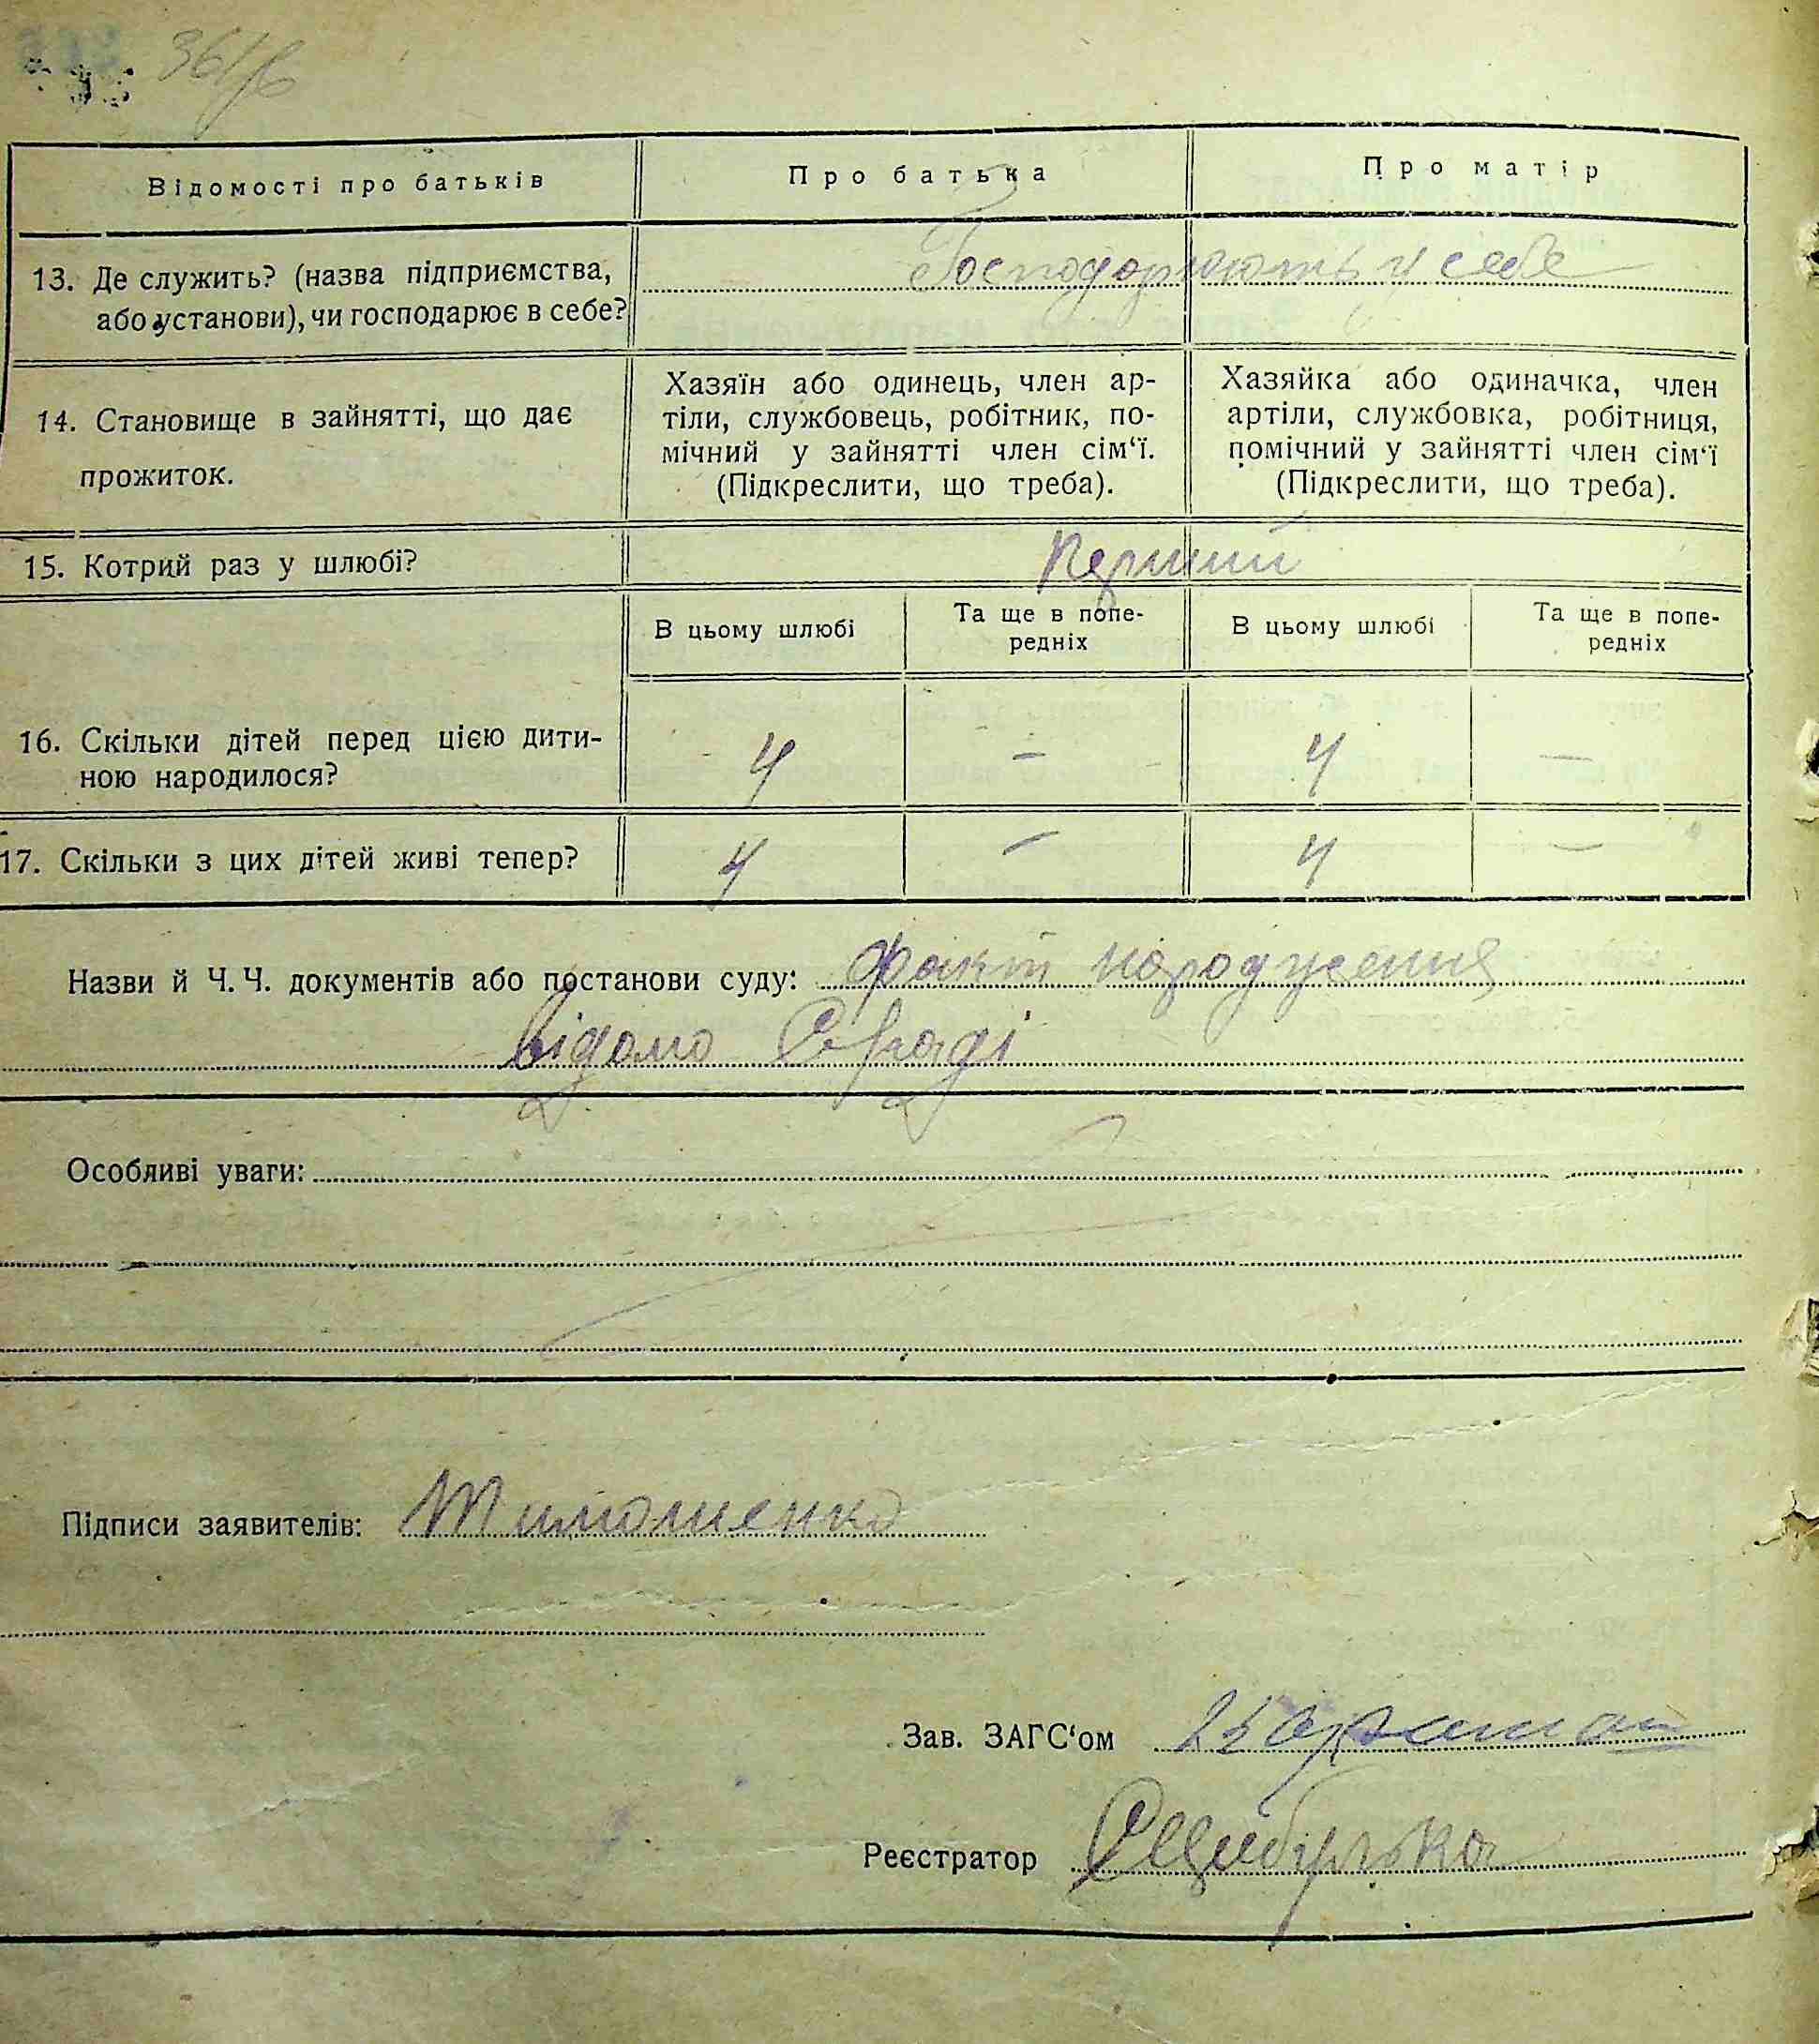 Відомості про батьків
Про батька
Про матір
13. Де служить? (назва підприємства,
або установи), чи господарює в себе?
Господарюють у себе
14. Становище в зайнятті, що дає
прожиток.
Хазяїн або одинець, член ар-
тіли, службовець, робітник, по-
мічний у зайнятті член сім‘ї.
(Підкреслити, що треба).
Хазяйка або одиначка, член
артіли, службовка, робітниця,
помічний у зайнятті член сім‘ї
(Підкреслити, що треба).
15. Котрий раз у шлюбі?
Перший
В цьому шлюбі
Та ще в попе-
редніх
В цьому шлюбі
Та ще в попе-
редніх
16. Скільки дітей перед цією дити-
ною народилося?
4 – 4 –
17. Скільки з цих дітей живі тепер?
4 – 4 –
Назви й Ч. Ч. документів або постанови суду: Факт народження
відомо С/раді
Особливі уваги:
Підписи заявителів: Тимошенко
Зав. ЗАГС‘ом
Реєстратор СЦибулька